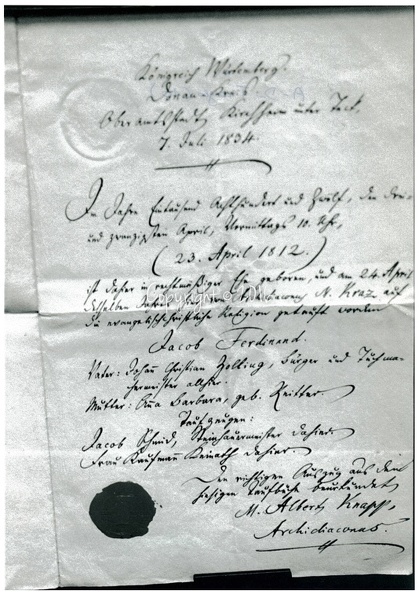 Königreich Würtemberg.
Donau-Kreis.
Oberamtsstadt Kirchheim unter Teck,
7. Juli 1834.
Im Jahre Eintausend Achthundert und Zwölf, den drei
und zwanzigsten April, Vormittags 10. Uhr,
(23. April 1812.)
ist dahier in rechtmäßiger Ehe geboren, und am 24. April
desselben Jahres von M. Kraz auf
die evangelisch-christliche Religion getauft worden
Jacob Ferdinand.
Vater: Johann Christian Zolling, Bürger und Tuchma-
chermeister allhier.
Mutter: Eva Barbara, geb. Reitter.
Taufzeugen:
Jacob Schmid, Steinhauermeister dahier.
Frau Kaufmann dahier.
Den richtigen Auszug aus dem
hiesigen Taufbuche beurkundet
M. Albert Knapp,
Archidiaconus.